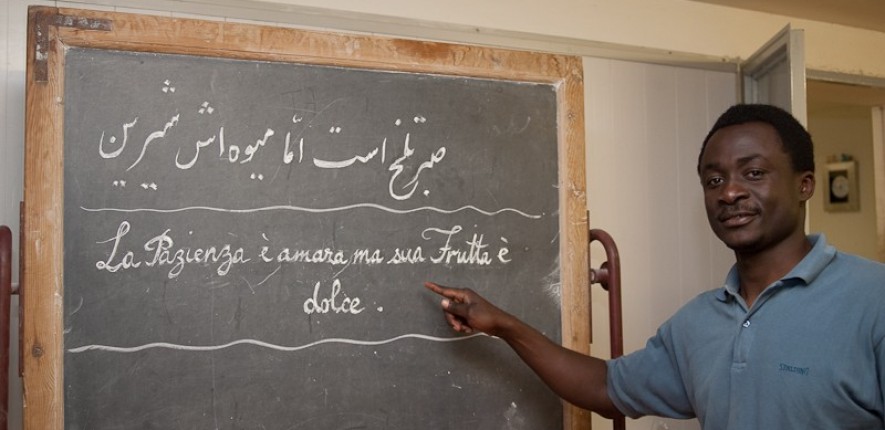 صبر تلخ است امّا میوه اش شیرین
La Pazienza è amara ma sua Frutta è
dolce.
SPALDING